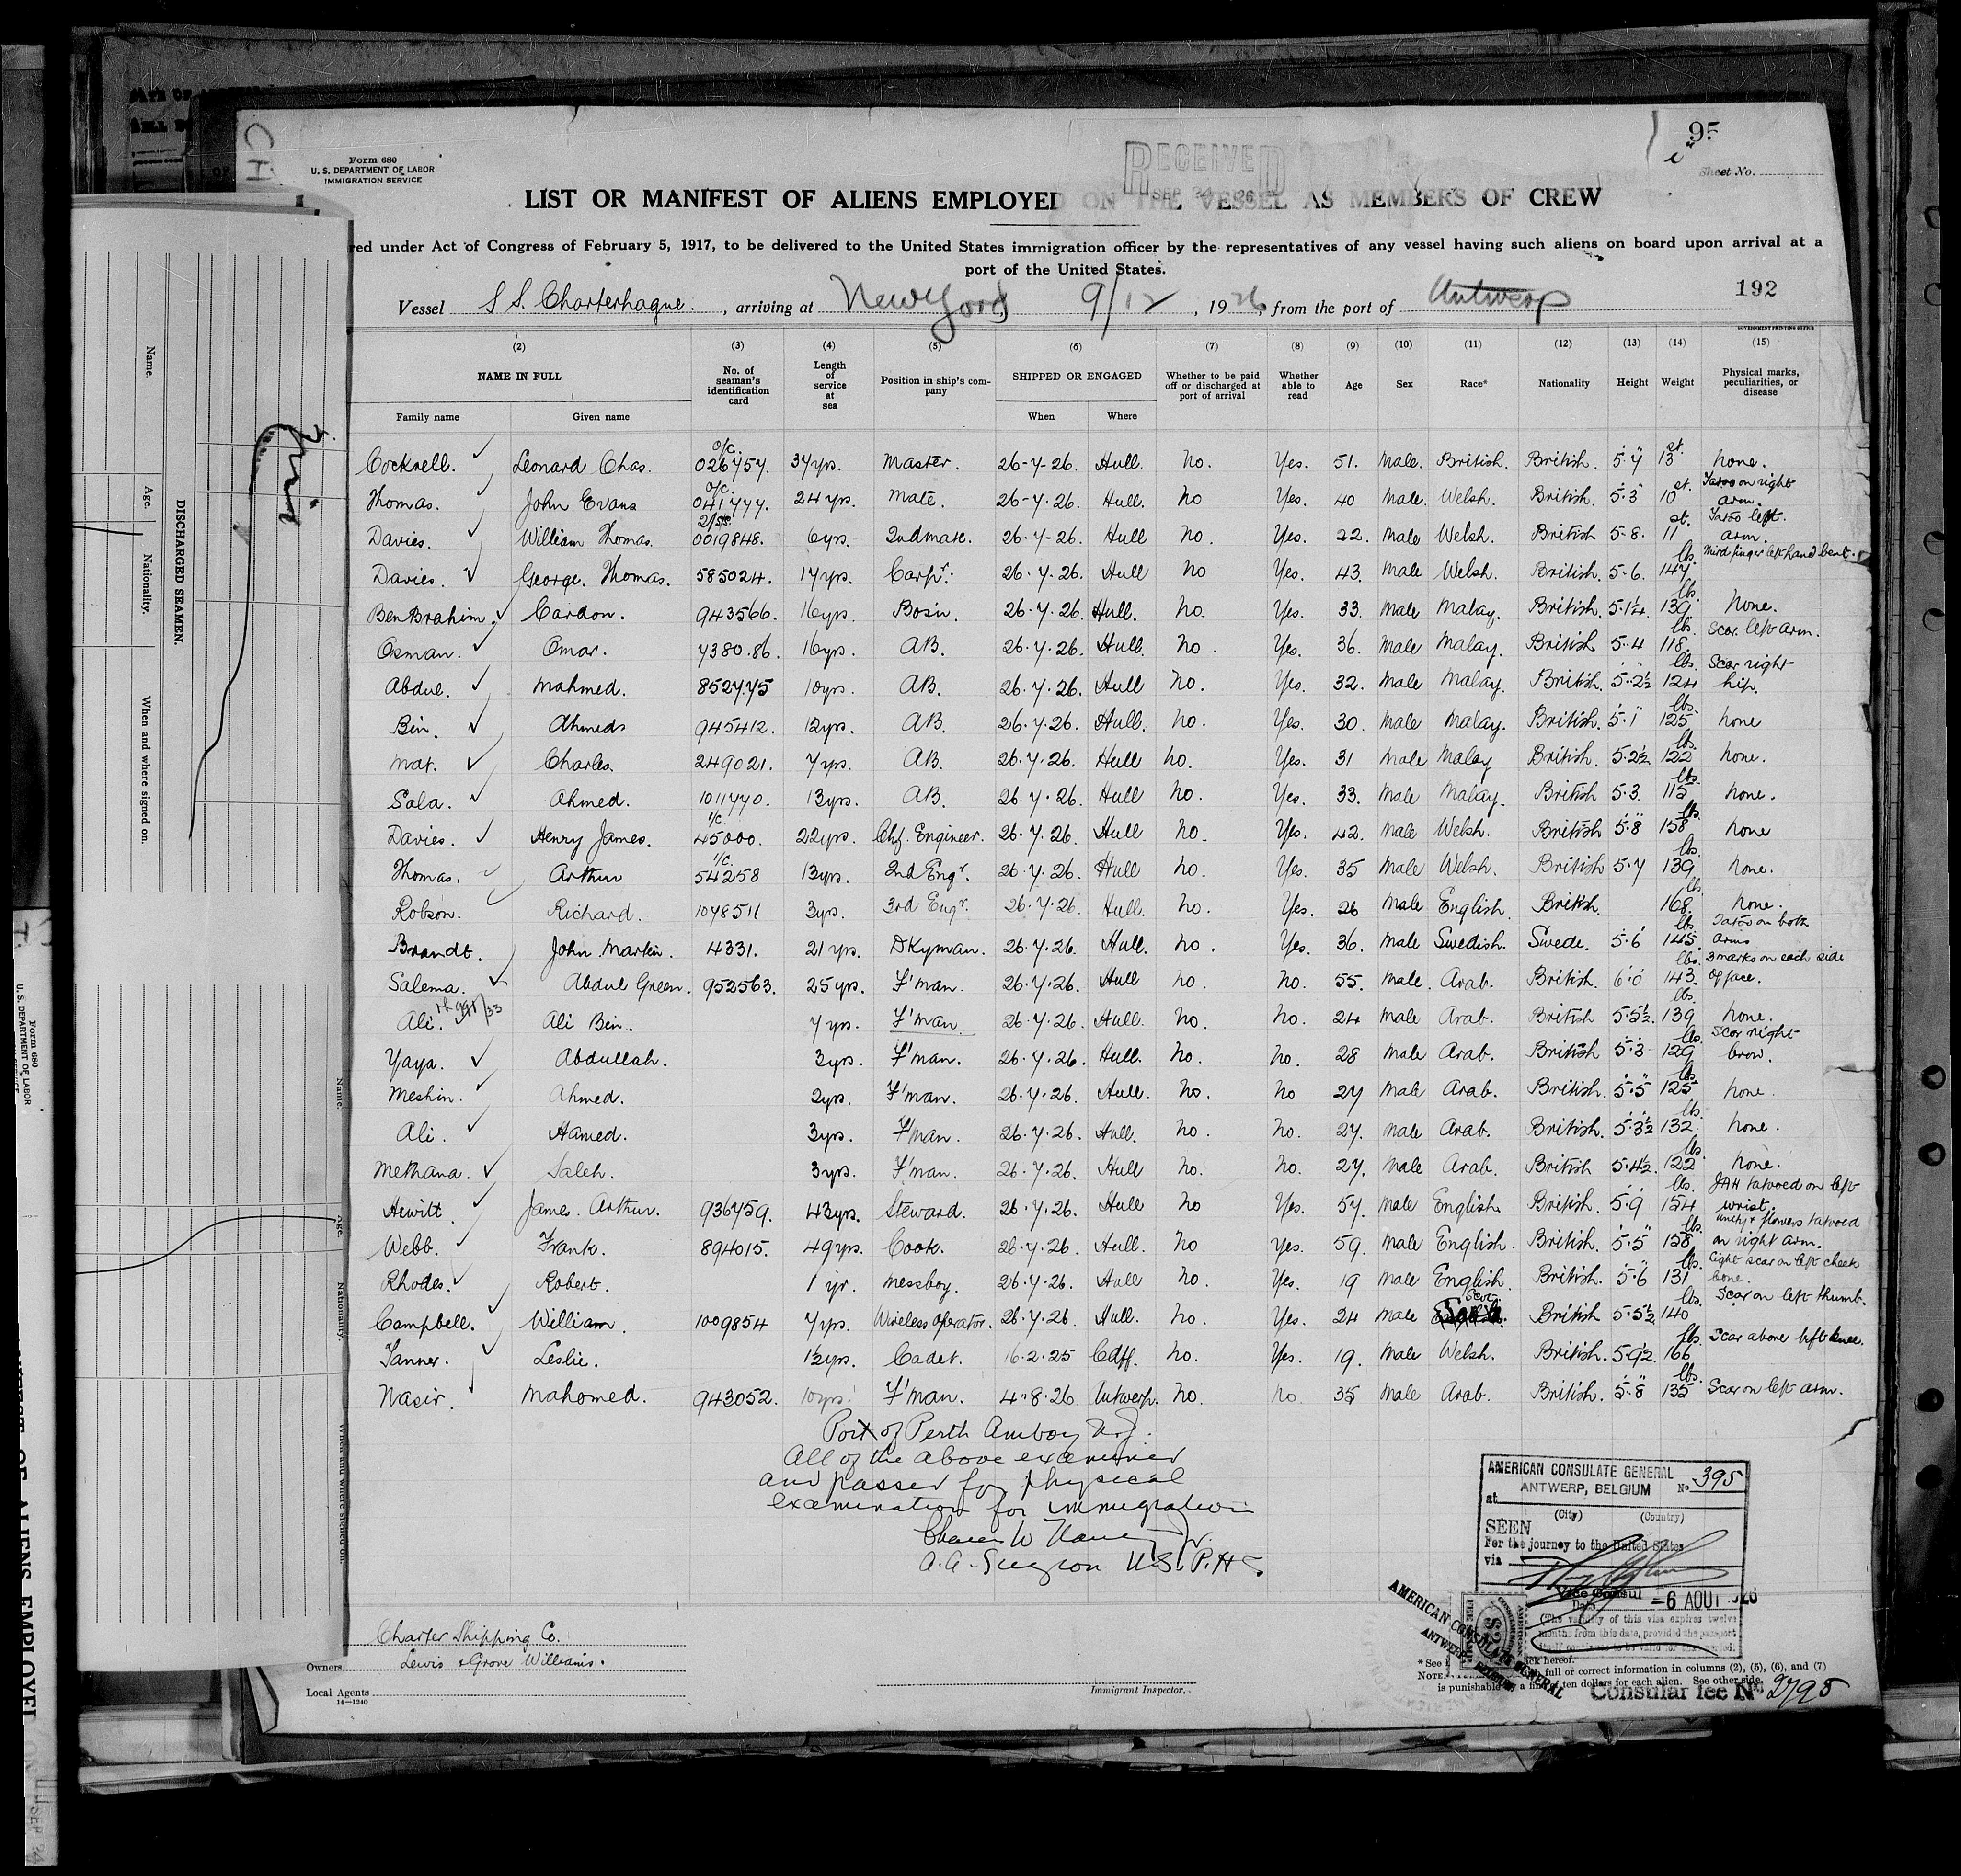 95
Sheet No.
Form 680
U. S. DEPARTMENT OF LABOR
IMMIGRATION SERVICE
RECEIVED
SEP 24 26
LIST OR MANIFEST OF ALIENS EMPLOYED ON THE VESSEL AS MEMBERS OF CREW
red under Act of Congress of February 5, 1917, to be delivered to the United States immigration officer by the representatives of any vessel having such aliens on board upon arrival at a
port of the United States.
192
Vessel S S. Charterhague. , arriving at New York 9/12 , 1926, from the port of Antwerp
GOVERNMENT PRINTING OFFICE
(2) (3) (4) (5) (6) (7) (8) (9) (10) (11) (12) (13) (14) (15)
NAME IN FULL No. of seaman's identification card Length of service at sea Position in ship's company SHIPPED OR ENGAGED Whether to be paid off or discharged at port of arrival Whether able to read Age Sex Race* Nationality Height Weight Physical marks, peculiarities, or disease
Family name Given name When Where
Cockrell. Leonard Chas. o/c. 026757. 37yrs. Master. 26-7-26. Hull. No. Yes. 51. Male. British. British. 5.7 13 st. None.
Thomas. John Evans o/c. 041777. 24yrs. Mate. 26-7.26. Hull No Yes. 40 Male. Welsh. British. 5.3 10 st. Tatoo on right arm.
Davies. William Thomas. 0019848. 6yrs. 2nd mate. 26-7-26. Hull No. Yes. 22. Male Welsh. British 5-8. 11 st. Tatoo left arm.
Davies. George. Thomas. 585024. 17yrs. Carpr. 26.7.26. Hull No Yes. 43. Male Welsh. British. 5-6. 147 lbs. Third finger left hand bent.
Ben Brahim. Cardon. 943566. 16yrs Bosn. 26.7.26. Hull. No. Yes. 33. Male Malay. British. 5.1¼. 139 lbs. None.
Osman. Omar. 7380.86. 16yrs. AB. 26.7.26. Hull. No. Yes. 36. Male Malay. British 5.4 118. lbs. Scar left arm.
Abdul. Mahmed. 852775 10yrs. AB. 26.7.26. Hull No. Yes. 32. Male Malay. British. 5.2½ 124 lbs. Scar right hip.
Bin. Ahmeds 945412. 12yrs. AB. 26.7.26. Hull. No. Yes. 30. Male Malay. British. 5.1 125 lbs. None
Mat. Charles. 249021. 7yrs. AB. 26.7.26. Hull No. Yes. 31 Male Malay British. 5.2½ 122 lbs. None.
Sala. Ahmed. 1011770. 13yrs. AB. 26.7.26. Hull No. Yes. 33. Male Malay. British 5.3. 115 lbs. None.
Davies. Henry James. 1/c. 45000. 22yrs. Chf. Engineer. 26.7.26. Hull No. Yes. 42. Male Welsh. British 5.8 158 lbs. None
Thomas. Arthur 1/c. 54258 13yrs. 2nd Engr. 26.7.26. Hull No. Yes. 35 Male Welsh. British 5.7 139 lbs. None.
Robson. Richard. 1078511 3yrs. 3rd Engr. 26.7.26 Hull. No. Yes. 26 Male English. British. 168 lbs. None.
Brandt. John Martin. 4331. 21yrs. Dkyman. 26.7.26. Hull. No. Yes. 36. Male Swedish. Swede. 5.6 145 lbs. Tatoo on both arms
Salema. Abdul Green. 952563. 25yrs. F'man. 26.7.26. Hull No. No. 55. Male. Arab. British. 6.0 143. lbs. 3 marks on each side of face.
Ali. Ali Bin. 7yrs. F'man. 26.7.26. Hull. No. No. 24 Male Arab. British 5.5½. 139 lbs. None.
Yaya. Abdullah. 3yrs. F'man. 26.7.26. Hull. No. No. 28 Male Arab. British 5.3 129 lbs. Scar right brow.
Meshin. Ahmed. 2yrs. F'man. 26.7.26. Hull. No. No 27 Male Arab. British. 5.5 125 lbs. None.
Ali. Hamed. 3yrs. F'man. 26.7.26. Hull. No. No. 27. Male Arab. British. 5.3½ 132 lbs. None.
Methana. Saleh. 3yrs. F'man. 26.7.26. Hull No. No. 27. Male Arab. British 5.4½. 122 lbs. None.
Hewitt. James. Arthur. 936759. 43yrs. Steward. 26.7.26. Hull No Yes. 57. Male English. British. 5.9 154 lbs. JAH tatooed on left wrist.
Webb. Frank. 894015. 49yrs. Cook. 26.7.26. Hull. No Yes. 59. Male English. British. 5.5 158 lbs. Unity & flowers tatooed on right arm.
Rhodes. Robert. 1 yr. Messboy. 26.7.26. Hull No. Yes. 19 Male English British. 5.6 131 lbs. Light scar on left cheek bone.
Campbell. William. 1009854 7yrs. Wireless Operator. 26.7.26. Hull. No. Yes. 24 Male Scot. British 5.5½ 140 lbs. Scar on left thumb.
Tanner. Leslie. 1½yrs. Cadet. 16.2.25 Cdff. No. Yes. 19. Male Welsh. British. 5.9½. 166 lbs. Scar above left knee.
Nasir. Mahomed. 943052. 10yrs. F'man. 4.8.26. Antwerp. No No 35 Male Arab. British. 5.8 135 lbs. Scar on left arm.
Port of Perth Amboy N.J.
All of the above examined
and passed for physical
examination for immigration
A.A. Surgeon U.S.P.H.S.
AMERICAN CONSULATE GENERAL
ANTWERP, BELGIUM No. 395
at
(City) (Country)
SEEN
For the journey to the United States
via
Vice Consul
Date -6 AOUT 1926
(The validity of this visa expires twelve
months from this date, provided the passport
itself continues to be valid for that period.
AMERICAN CONSULATE GENERAL
ANTWERP, BELGIUM
Charter Shipping Co.
Owners Lewis & Grove Williams.
Local Agents
14—1240
Immigrant Inspector.
* See ck hereof.
NOTE. full or correct information in columns (2), (5), (6), and (7)
is punishable a fine of ten dollars for each alien. See other side.
Consular fee No. 2795
DISCHARGED SEAMEN.
Name.
Age.
Nationality.
When and where signed on.
Name.
Age.
Nationality.
When and where signed on.
Form 680
U. S. DEPARTMENT OF LABOR
OF ALIENS EMPLOYED ON
SEP 24